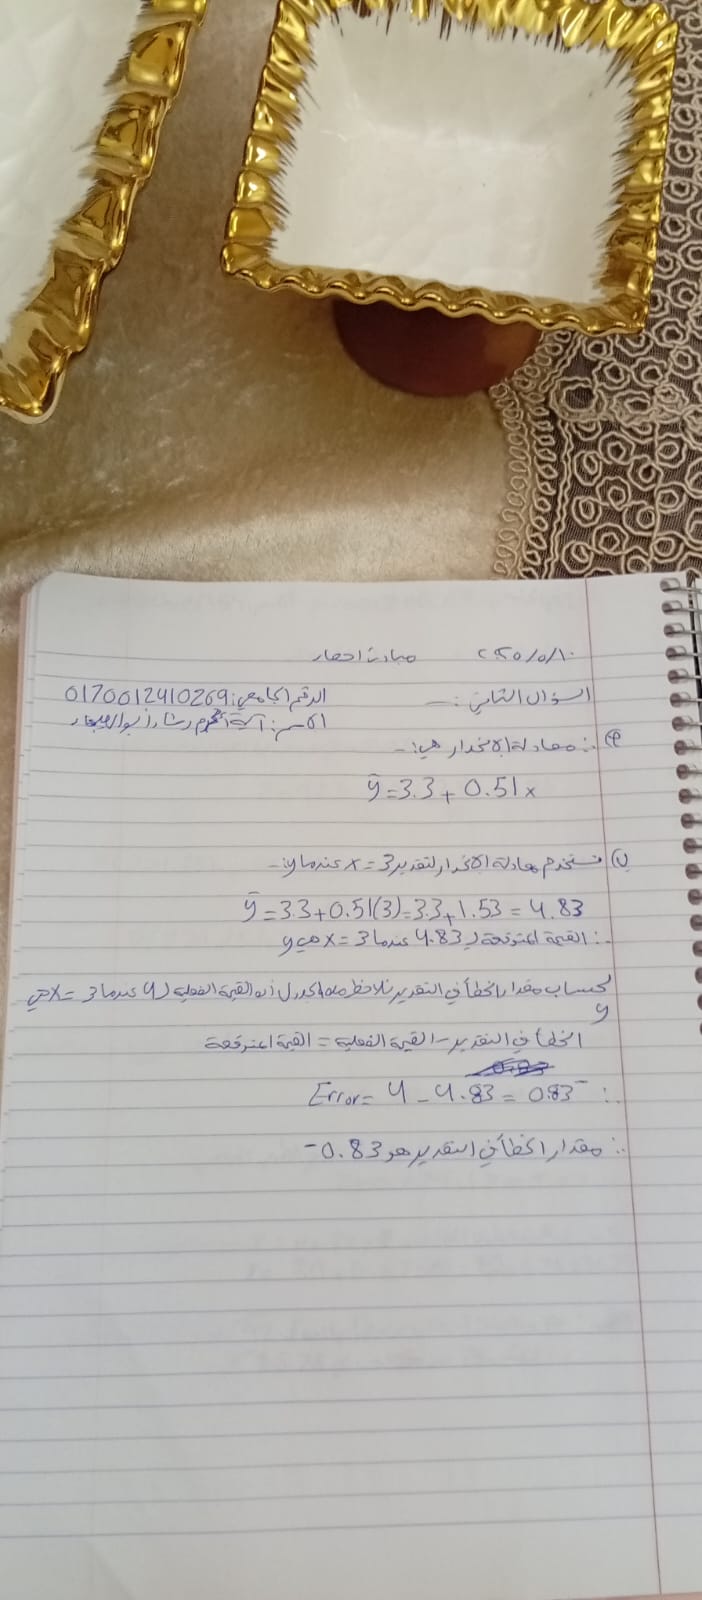 مبادئ احصاء ٢٠٢٥/٥/١٠
السؤال الثاني :- الرقم الجامعي: 0170012410269
الاسم: آية أكرم رشاد أبو
∴ معادلة الانحدار هي:-
ȳ = 3.3 + 0.51x
ب) نستخدم معادلة الانحدار لتقدير y عندما x = 3 :-
ȳ = 3.3 + 0.51(3) = 3.3 + 1.53 = 4.83
∴ القيمة المتوقعة لـ y عندما x = 3 هي 4.83
لحساب مقدار الخطأ في التقدير نلاحظ من الجدول أن القيمة الفعلية لـ y عندما x = 3 هي
4
الخطأ في التقدير = القيمة الفعلية - القيمة المتوقعة
∴ Error = 4 - 4.83 = 0.83⁻
∴ مقدار الخطأ في التقدير هو 0.83-